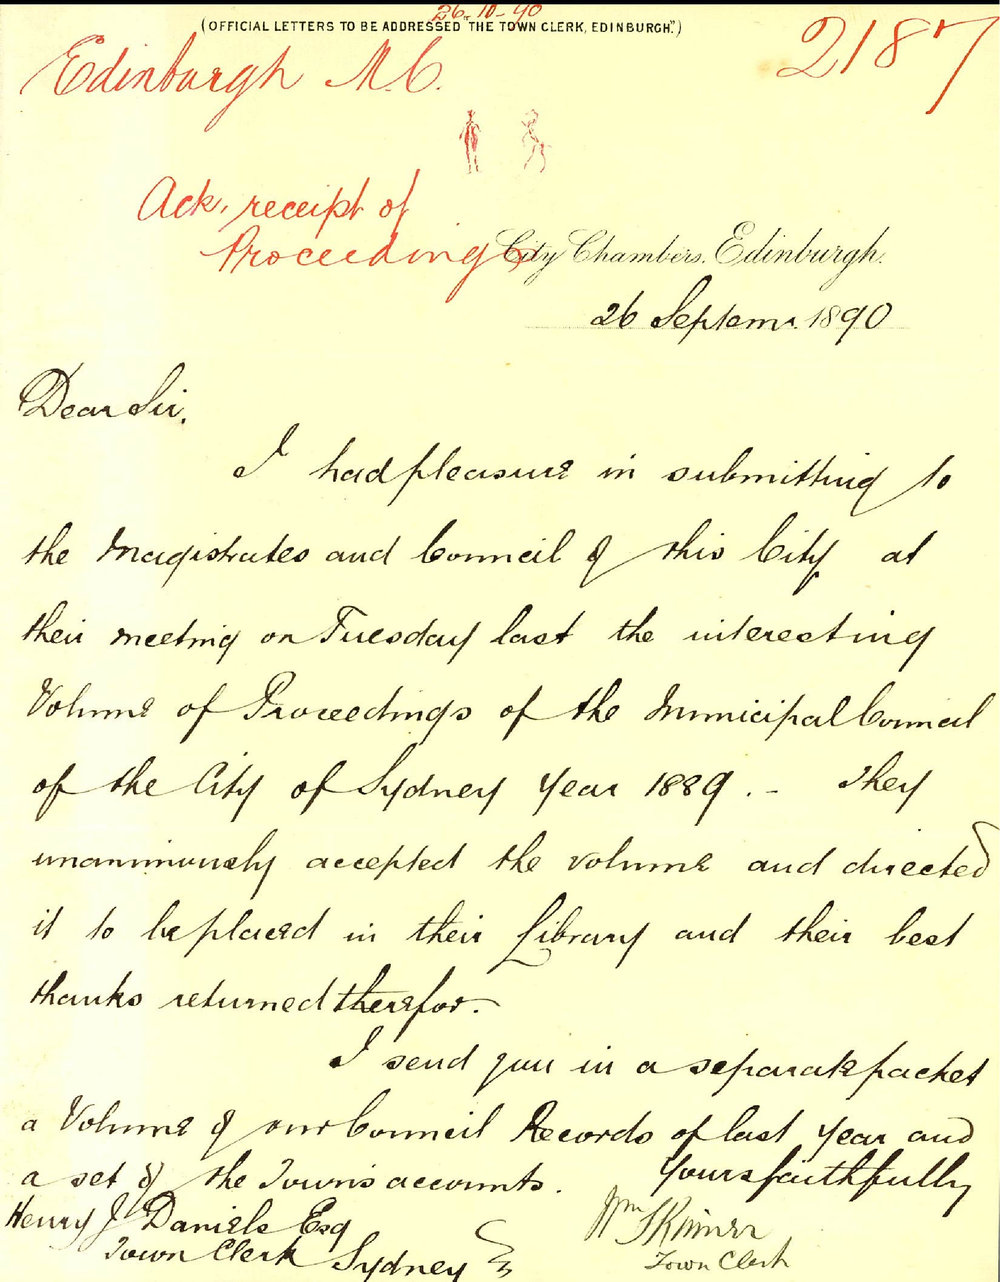 26-10-90
(OFFICIAL LETTERS TO BE ADDRESSED "THE TOWN CLERK, EDINBURGH.")
2187
Edinburgh M.C.
Ack. receipt of
Proceedings
City Chambers, Edinburgh.
26 Septemr. 1890
Dear Sir,
I had pleasure in submitting to
the Magistrates and Council of this City at
their meeting on Tuesday last the interesting
Volume of Proceedings of the Municipal Council
of the City of Sydney Year 1889. - They
unanimously accepted the volume and directed
it to be placed in their Library and their best
thanks returned therefor.
I send you in a separate packet
a Volume of our Council Records of last year and
a set of the Town's accounts.
Yours faithfully
Wm Skinner
Town Clerk
Henry J Daniels Esq
Town Clerk
Sydney